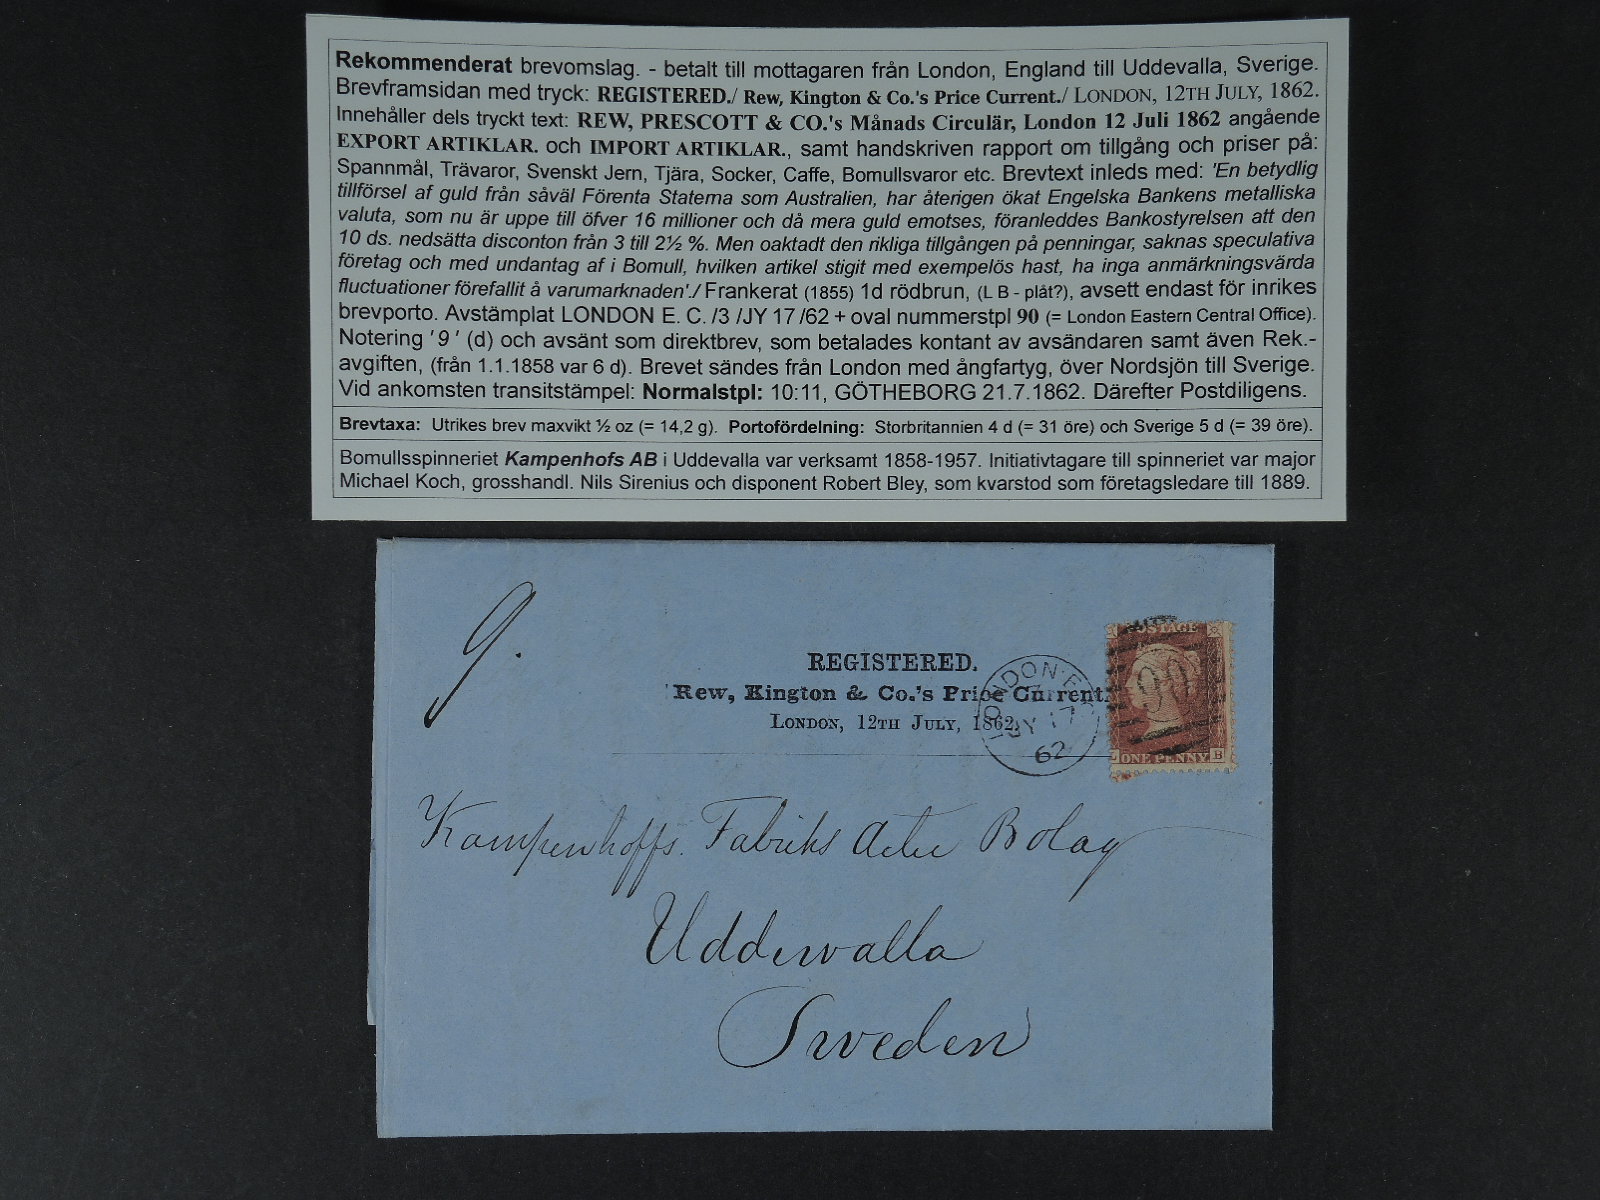 Rekommenderat brevomslag. - betalt till mottagaren från London, England till Uddevalla, Sverige.
Brevframsidan med tryck: REGISTERED./ Rew, Kington & Co.'s Price Current./ LONDON, 12TH JULY, 1862.
Innehåller dels tryckt text: REW, PRESCOTT & CO.'s Månads Circulär, London 12 Juli 1862 angående
EXPORT ARTIKLAR. och IMPORT ARTIKLAR., samt handskriven rapport om tillgång och priser på:
Spannmål, Trävaror, Svenskt Jern, Tjära, Socker, Caffe, Bomullsvaror etc. Brevtext inleds med: 'En betydlig
tillförsel af guld från såväl Förenta Staterna som Australien, har återigen ökat Engelska Bankens metalliska
valuta, som nu är uppe till öfver 16 millioner och då mera guld emotses, föranleddes Bankostyrelsen att den
10 ds. nedsätta disconton från 3 till 2½ %. Men oaktadt den rikliga tillgången på penningar, saknas speculativa
företag och med undantag af i Bomull, hvilken artikel stigit med exempelös hast, ha inga anmärkningsvärda
fluctuationer förefallit å varumarknaden'./ Frankerat (1855) 1d rödbrun, (L B - plåt?), avsett endast för inrikes
brevporto. Avstämplat LONDON E. C. /3 /JY 17 /62 + oval nummerstpl 90 (= London Eastern Central Office).
Notering '9' (d) och avsänt som direktbrev, som betalades kontant av avsändaren samt även Rek.-
avgiften, (från 1.1.1858 var 6 d). Brevet sändes från London med ångfartyg, över Nordsjön till Sverige.
Vid ankomsten transitstämpel: Normalstpl: 10:11, GÖTHEBORG 21.7.1862. Därefter Postdiligens.
Brevtaxa: Utrikes brev maxvikt ½ oz (= 14,2 g). Portofördelning: Storbritannien 4 d (= 31 öre) och Sverige 5 d (= 39 öre).
Bomullsspinneriet Kampenhofs AB i Uddevalla var verksamt 1858-1957. Initiativtagare till spinneriet var major
Michael Koch, grosshandl. Nils Sirenius och disponent Robert Bley, som kvarstod som företagsledare till 1889.
9.
REGISTERED.
Rew, Kington & Co.'s Price Current.
LONDON, 12TH JULY, 1862.
LONDON E
JY 17
62
POSTAGE
90
L ONE PENNY B
Kampenhoffs. Fabriks Actie Bolag
Uddewalla
Sweden